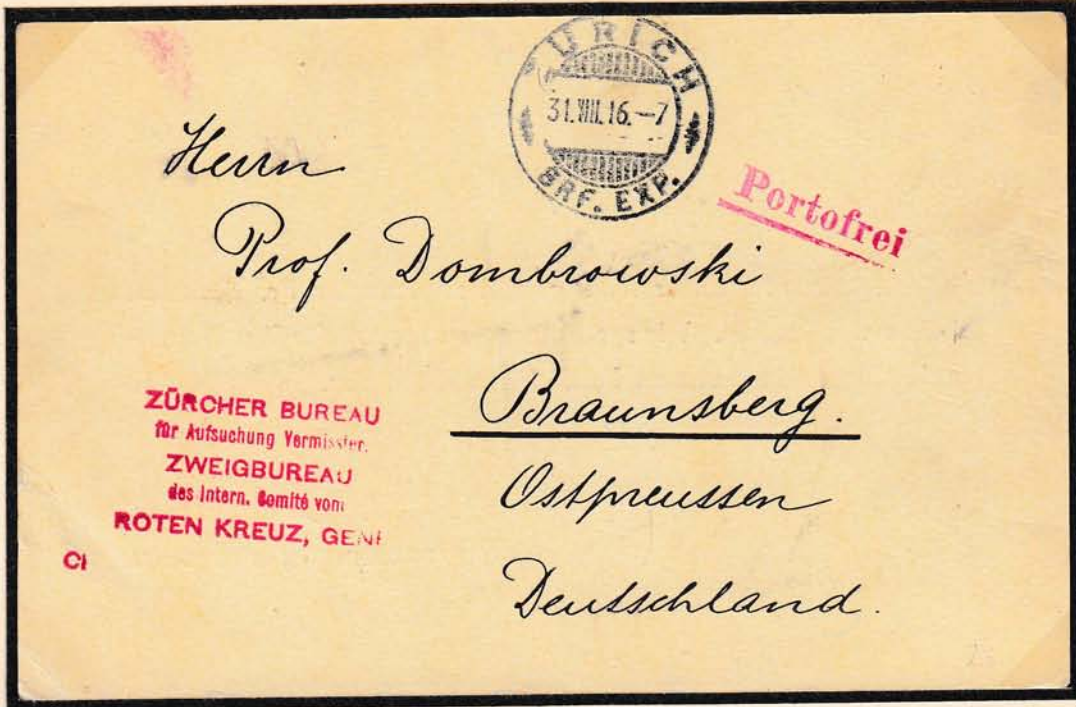 ZURICH
31.VIII.16.–7
BRF. EXP.
Portofrei
Herrn
Prof. Dombrowski
Braunsberg.
Ostpreussen
Deutschland.
ZÜRCHER BUREAU
für Aufsuchung Vermisster.
ZWEIGBUREAU
des Intern. Comité vom
ROTEN KREUZ, GENF